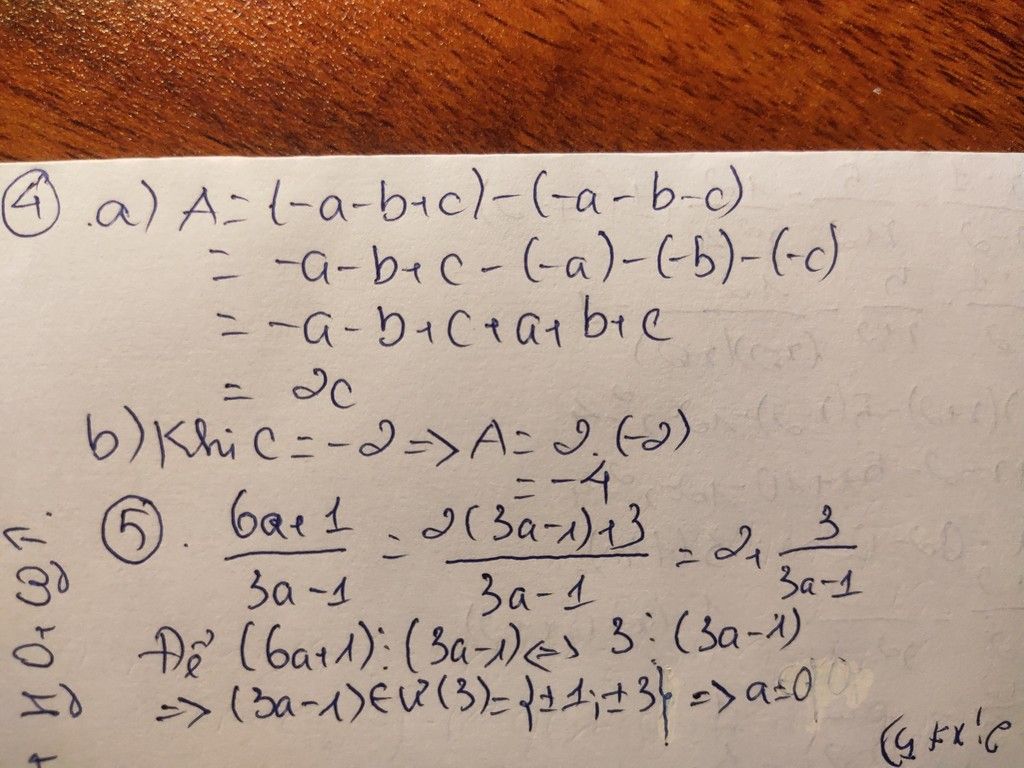 ④ .a) A = (-a-b+c)-(-a-b-c)
= -a-b+c-(-a)-(-b)-(-c)
= -a-b+c+a+b+c
= 2c
b) Khi c = -2 => A = 2.(-2)
= -4
⑤. (6a+1)/(3a-1) = (2(3a-1)+3)/(3a-1) = 2+ 3/(3a-1)
Để (6a+1)⋮(3a-1) <=> 3⋮(3a-1)
=> (3a-1)∈Ư(3)={±1;±3} => a=0